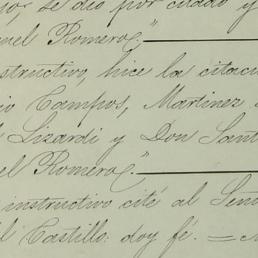 se dió por citado y
uel Romero."
nstructivo, hice la citaci
io Campos, Martinez
Lizardi y Don Sant
el Romero."
instructivo cité al Seño
l Castillo: doy fé. =